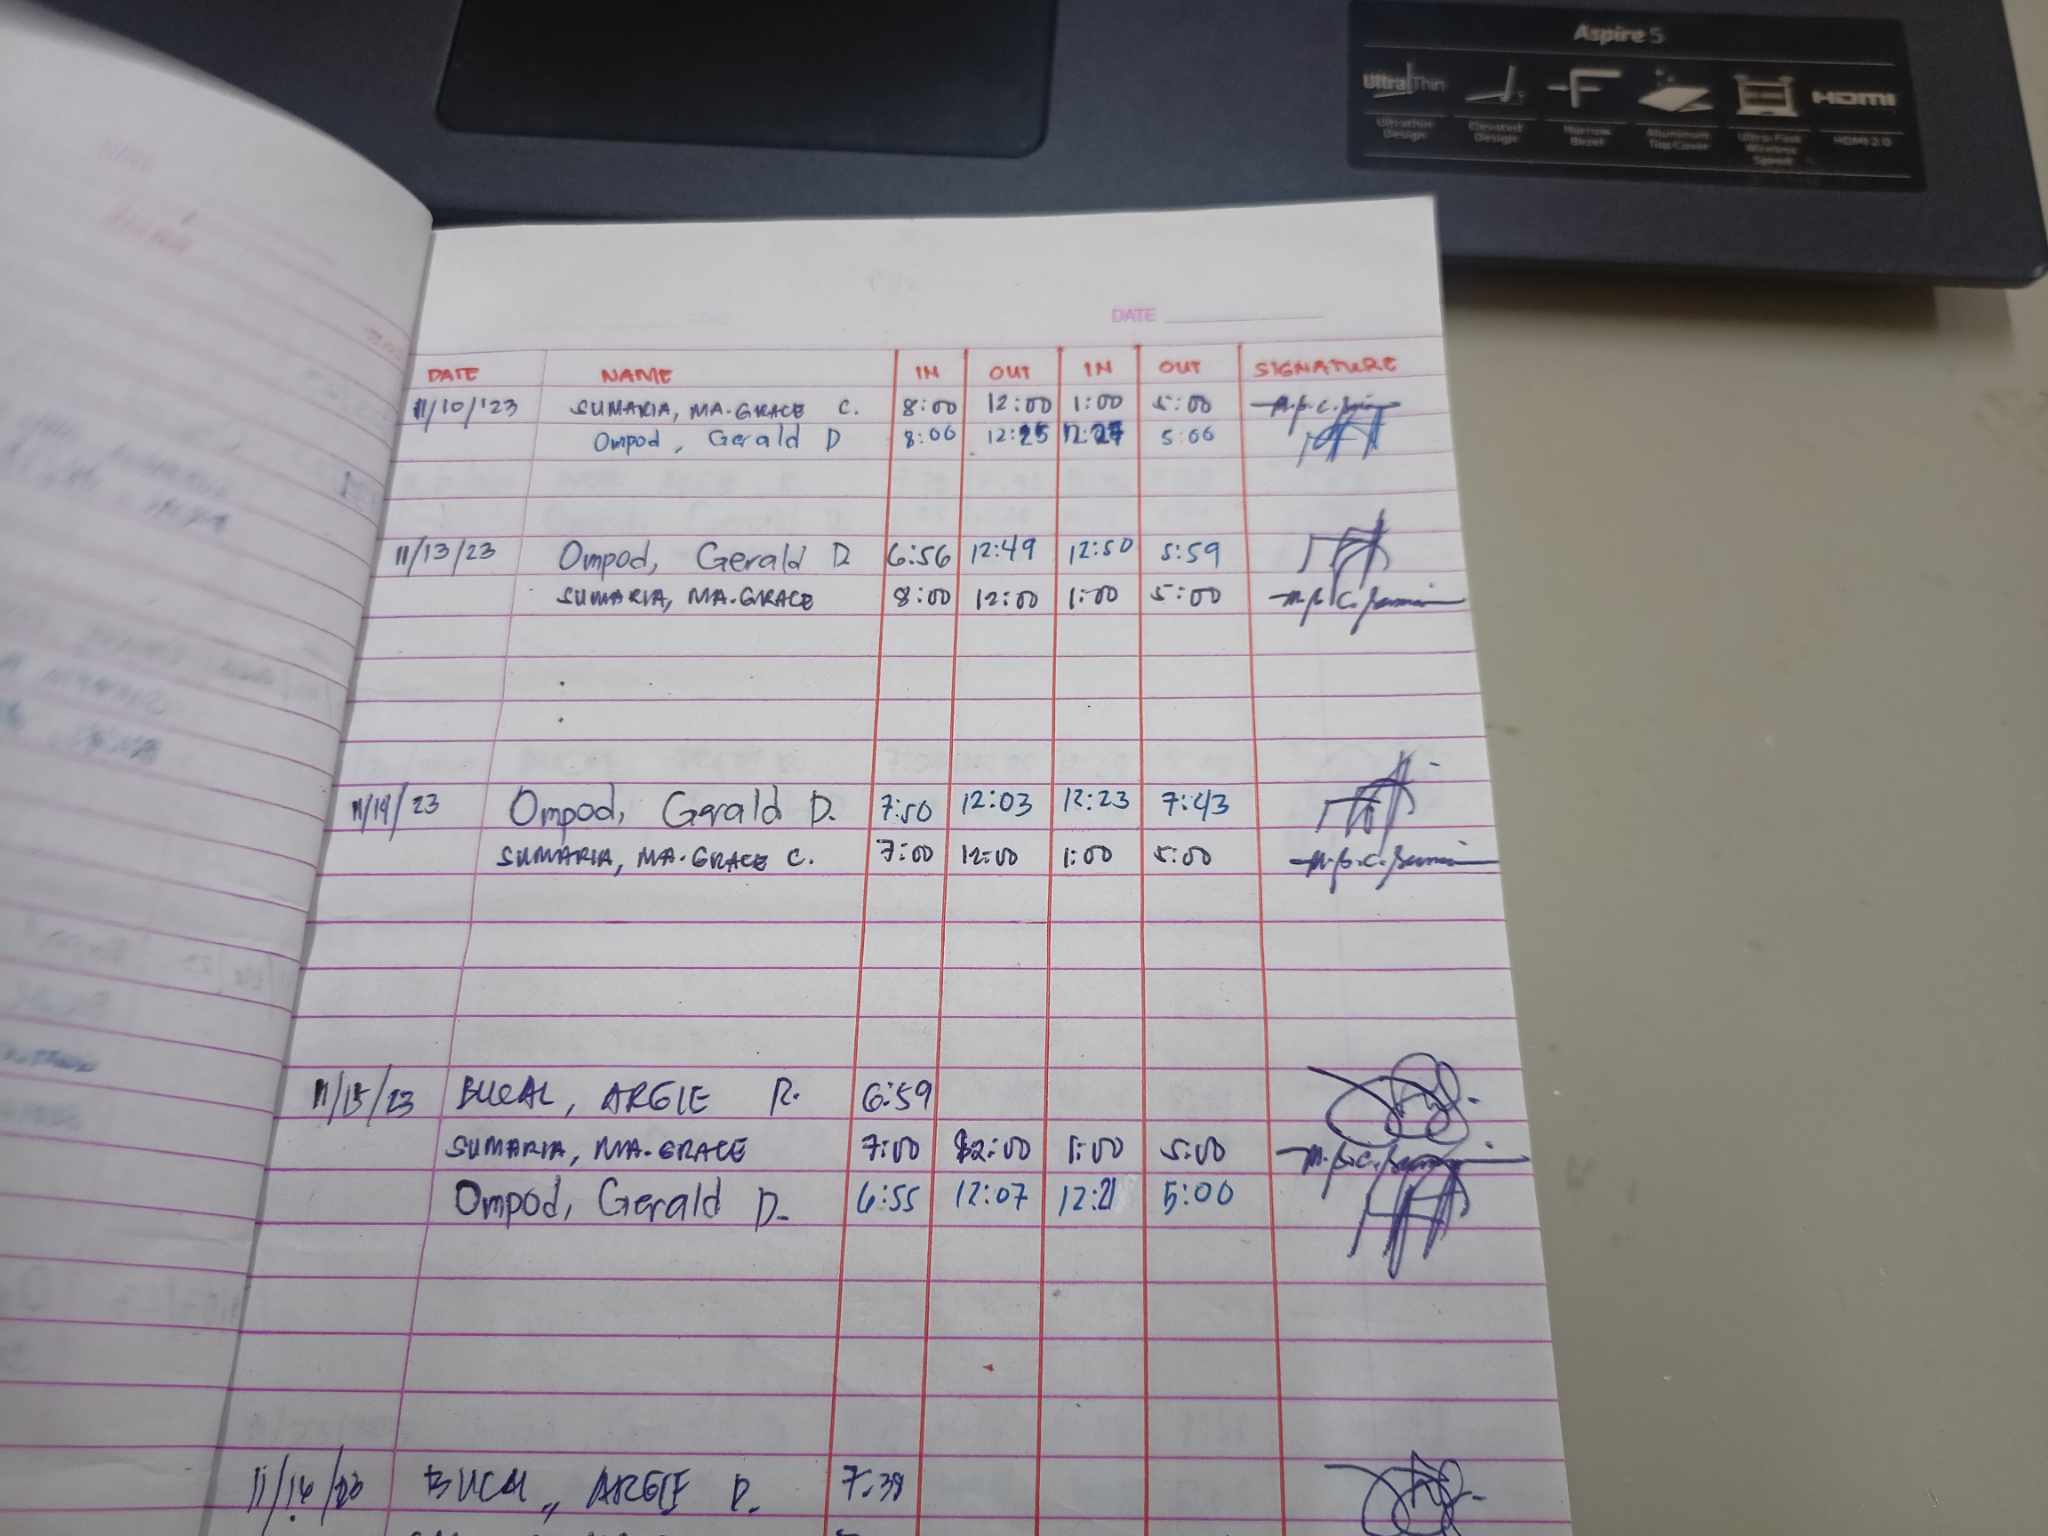 Aspire 5
Ultra Thin HDMI
Ultrathin Design Elevated Design Narrow Bezel Aluminum Top Cover Ultra-Fast Wireless Speed HDMI 2.0
DATE
DATE NAME IN OUT IN OUT SIGNATURE
11/10/'23 SUMARIA, MA. GRACE C. 8:00 12:00 1:00 5:00
Ompod, Gerald D 8:06 12:25 12:27 5:06
11/13/23 Ompod, Gerald D. 6:56 12:49 12:50 5:59
SUMARIA, MA. GRACE 8:00 12:00 1:00 5:00
11/14/23 Ompod, Gerald D. 7:50 12:03 12:23 7:43
SUMARIA, MA. GRACE C. 7:00 12:00 1:00 5:00
11/15/23 BUCAL, ARGIE R. 6:59
SUMARIA, MA. GRACE 7:00 12:00 1:00 5:00
Ompod, Gerald D. 6:55 12:07 12:21 5:00
11/16/23 BUCAL, ARGIE R. 7:38